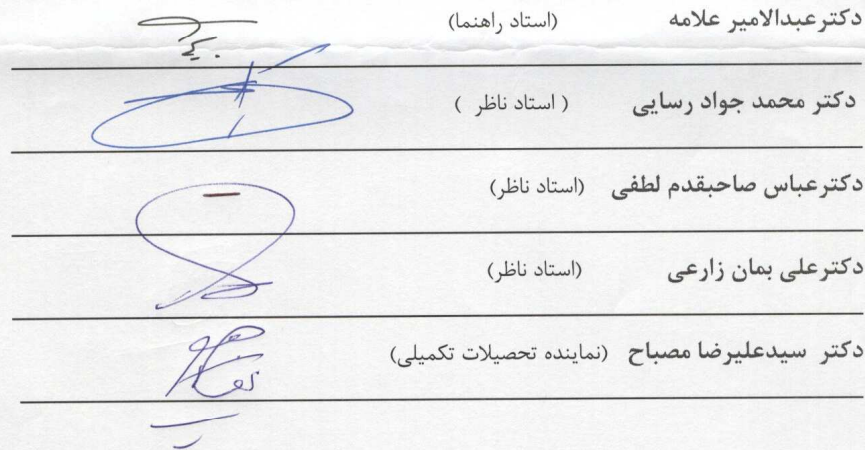 دکترعبدالامیر علامه (استاد راهنما)
دکتر محمد جواد رسایی ( استاد ناظر )
دکترعباس صاحبقدم لطفی (استاد ناظر)
دکترعلی بمان زارعی (استاد ناظر)
دکتر سیدعلیرضا مصباح (نماینده تحصیلات تکمیلی)